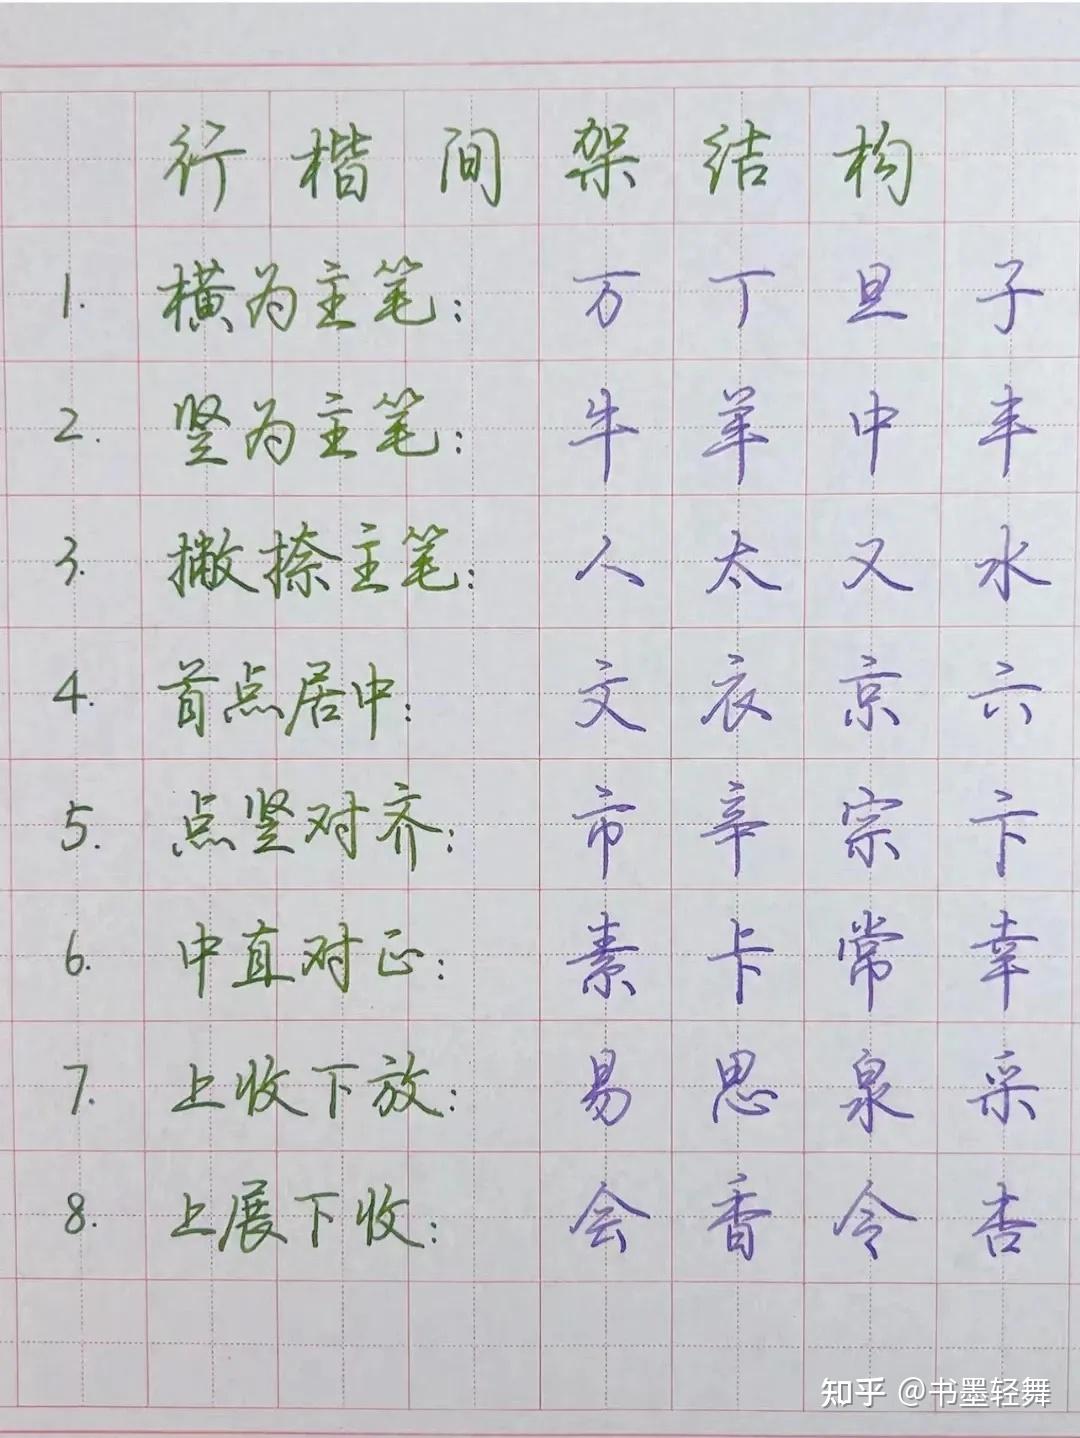 行楷间架结构
1. 横为主笔: 万 丁 旦 子
2. 竖为主笔: 牛 羊 中 丰
3. 撇捺主笔: 人 太 又 水
4. 首点居中: 文 衣 京 六
5. 点竖对齐: 市 辛 宗 卞
6. 中直对正: 素 卡 常 幸
7. 上收下放: 易 思 泉 采
8. 上展下收: 会 香 令 杏
知乎 @书墨轻舞